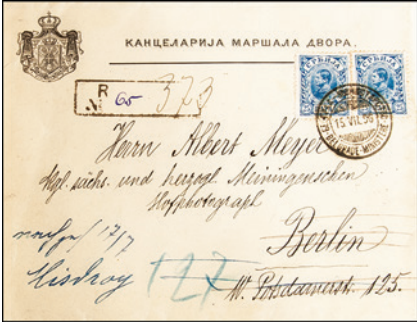 КАНЦЕЛАРИЈА МАРШАЛА ДВОРА.
СРБИЈА СРБИЈА
R
№ 65 373
15 VII 
Herrn Albert Meyer
Kgl. sächs. und herzogl. Meiningenschen
Hofphotograph
Berlin
W. Potsdamerstr. 125.
nachges 17/7
Misdroy
127